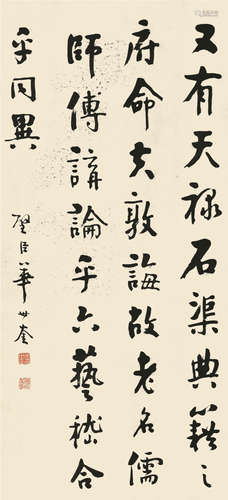 又有天祿石渠典籍之
府命夫敦誨故老名儒
師傅講論乎六藝稽合
乎同異
璧臣華世奎